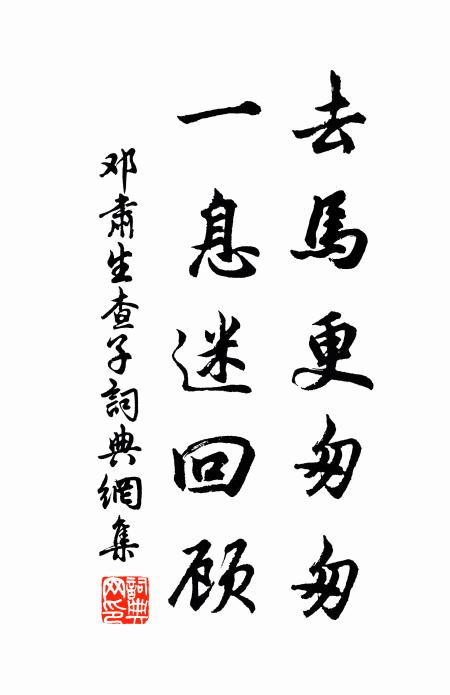 去馬更匆匆
一息迷回顾
邓肅生查子詞典網集
詞典網印